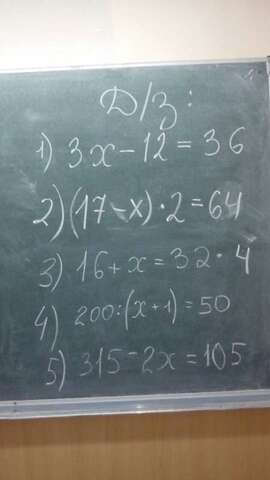 Д/з:
1) 3x - 12 = 36
2) (17 - x) · 2 = 64
3) 16 + x = 32 · 4
4) 200 : (x + 1) = 50
5) 315 - 2x = 105